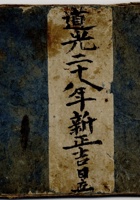 道光二十八年新正吉日立